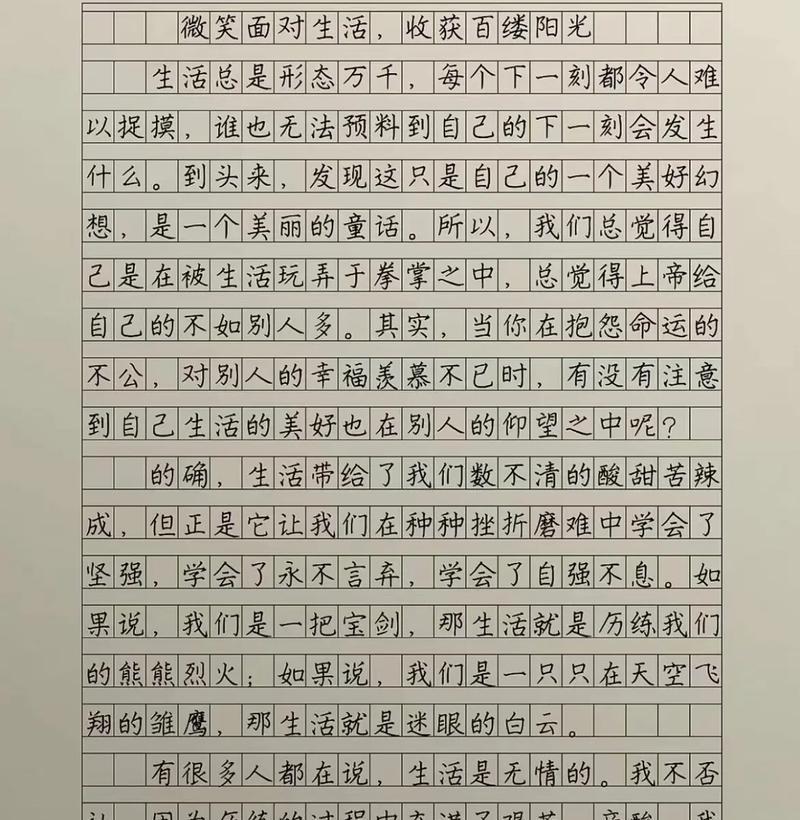 微笑面对生活，收获百缕阳光
生活总是形态万千，每个下一刻都令人难
以捉摸，谁也无法预料到自己的下一刻会发生
什么。到头来，发现这只是自己的一个美好幻
想，是一个美丽的童话。所以，我们总觉得自
己是在被生活玩弄于拳掌之中，总觉得上帝给
自己的不如别人多。其实，当你在抱怨命运的
不公，对别人的幸福羡慕不已时，有没有注意
到自己生活的美好也在别人的仰望之中呢？
的确，生活带给了我们数不清的酸甜苦辣
咸，但正是它让我们在种种挫折磨难中学会了
坚强，学会了永不言弃，学会了自强不息。如
果说，我们是一把宝剑，那生活就是历练我们
的熊熊烈火；如果说，我们是一只只在天空飞
翔的雏鹰，那生活就是迷眼的白云。
有很多人都在说，生活是无情的。我不否